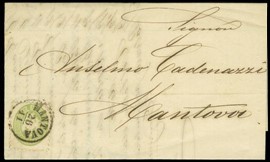 Signor
Anselmo Cadenazzi
Mantova
MANTOVA